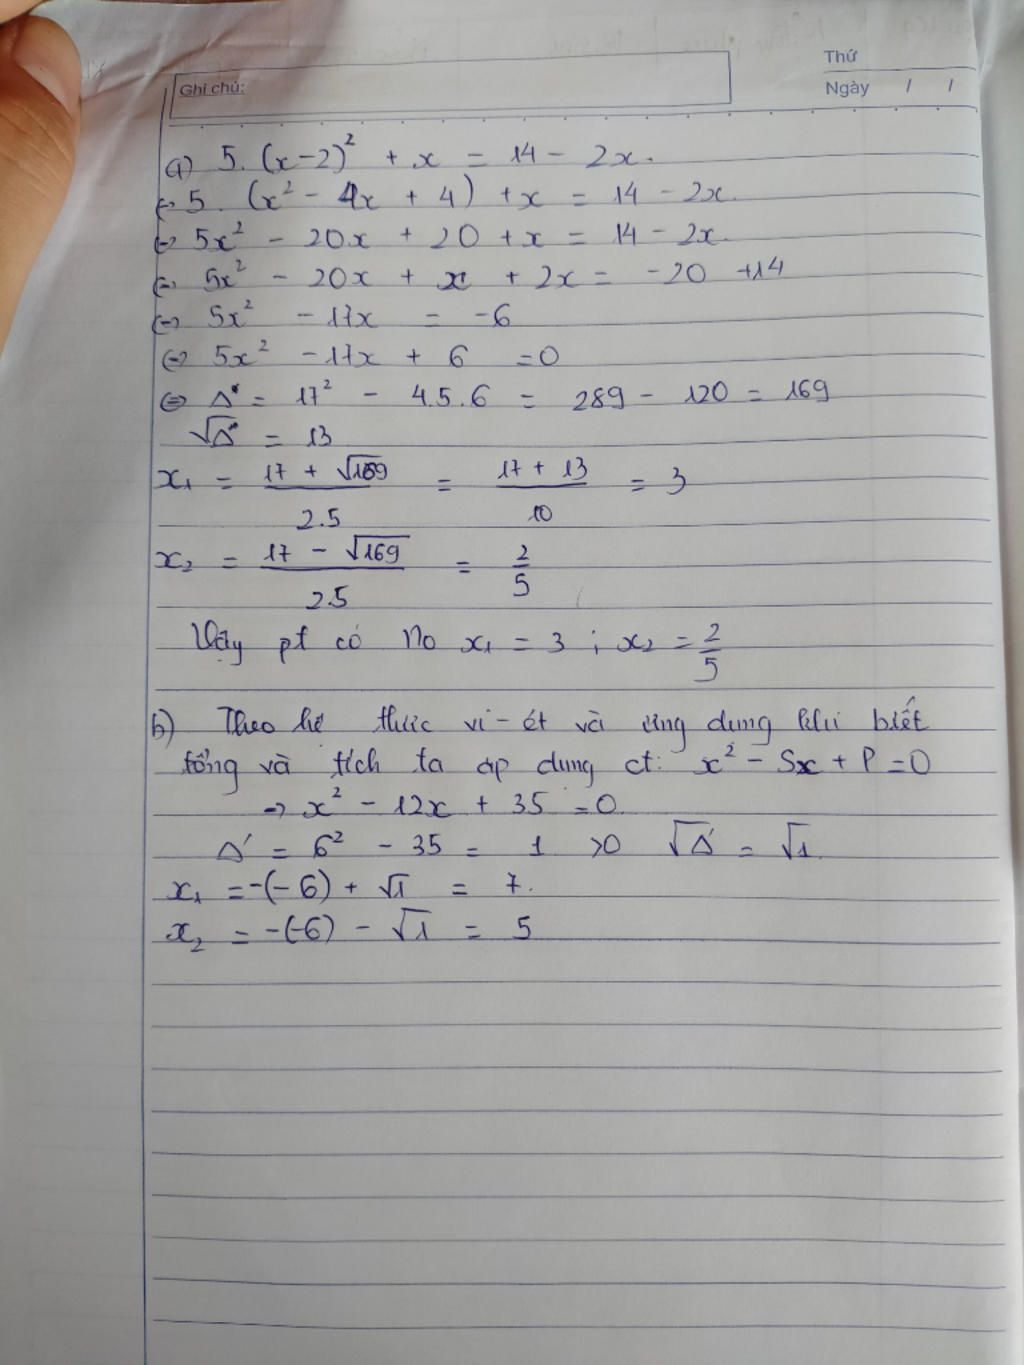 Thứ
Ghi chú:
Ngày / /
a) 5. (x-2)² + x = 14 - 2x.
(=) 5. (x² - 4x + 4) + x = 14 - 2x.
(=) 5x² - 20x + 20 + x = 14 - 2x.
(=) 5x² - 20x + x + 2x = -20 +14
(=) 5x² - 17x = -6
(=) 5x² - 17x + 6 = 0
(=) Δ = 17² - 4.5.6 = 289 - 120 = 169
√Δ = 13
x₁ = (17 + √169)/2.5 = (17 + 13)/10 = 3
x₂ = (17 - √169)/2.5 = 2/5
Vậy pt có No x₁ = 3 ; x₂ = 2/5
b) Theo hệ thức vi-ét và ứng dụng khi biết
tổng và tích ta áp dụng ct: x² - Sx + P = 0
=> x² - 12x + 35 = 0
Δ' = 6² - 35 = 1 >0 √Δ' = √1.
x₁ = -(-6) + √1 = 7.
x₂ = -(-6) - √1 = 5